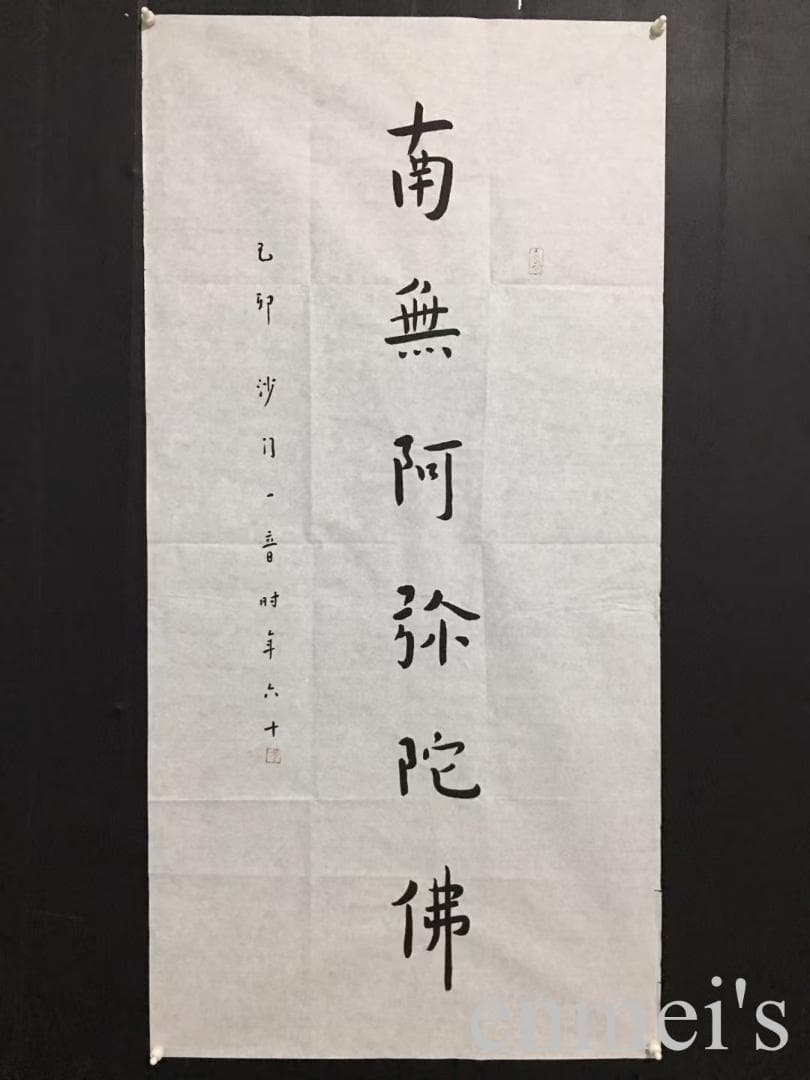 南無阿弥陀佛
己卯沙门一音时年六十
enmei's